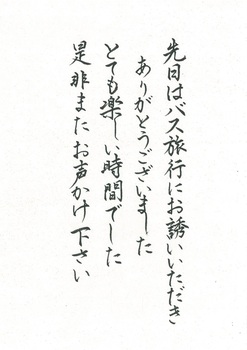 先日はバス旅行にお誘いいただき
ありがとうございました
とても楽しい時間でした
是非またお声かけ下さい